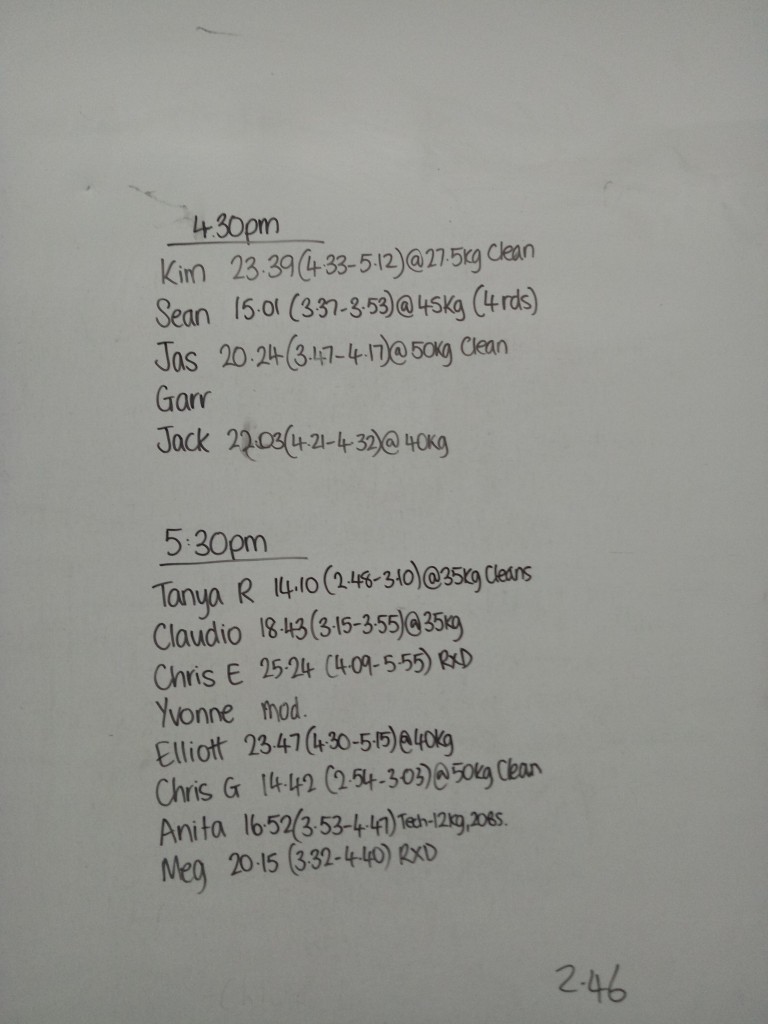 4.30pm
Kim 23.39(4.33-5.12)@27.5kg Clean
Sean 15.01 (3.37-3.53)@45kg (4rds)
Jas 20.24(3.47-4.17)@50kg Clean
Garr
Jack 22.03(4.21-4.32)@40kg
5:30pm
Tanya R 14.10(2.48-3.10)@35kg Cleans
Claudio 18.43(3.15-3.55)@35kg
Chris E 25.24 (4.09-5.55) RXD
Yvonne mod.
Elliott 23.47(4.30-5.15)@40kg
Chris G 14.42 (2.54-3.03)@50kg Clean
Anita 16.52(3.53-4.47) Tech-12kg,20BS.
Meg 20.15 (3.32-4.40) RXD
2.46